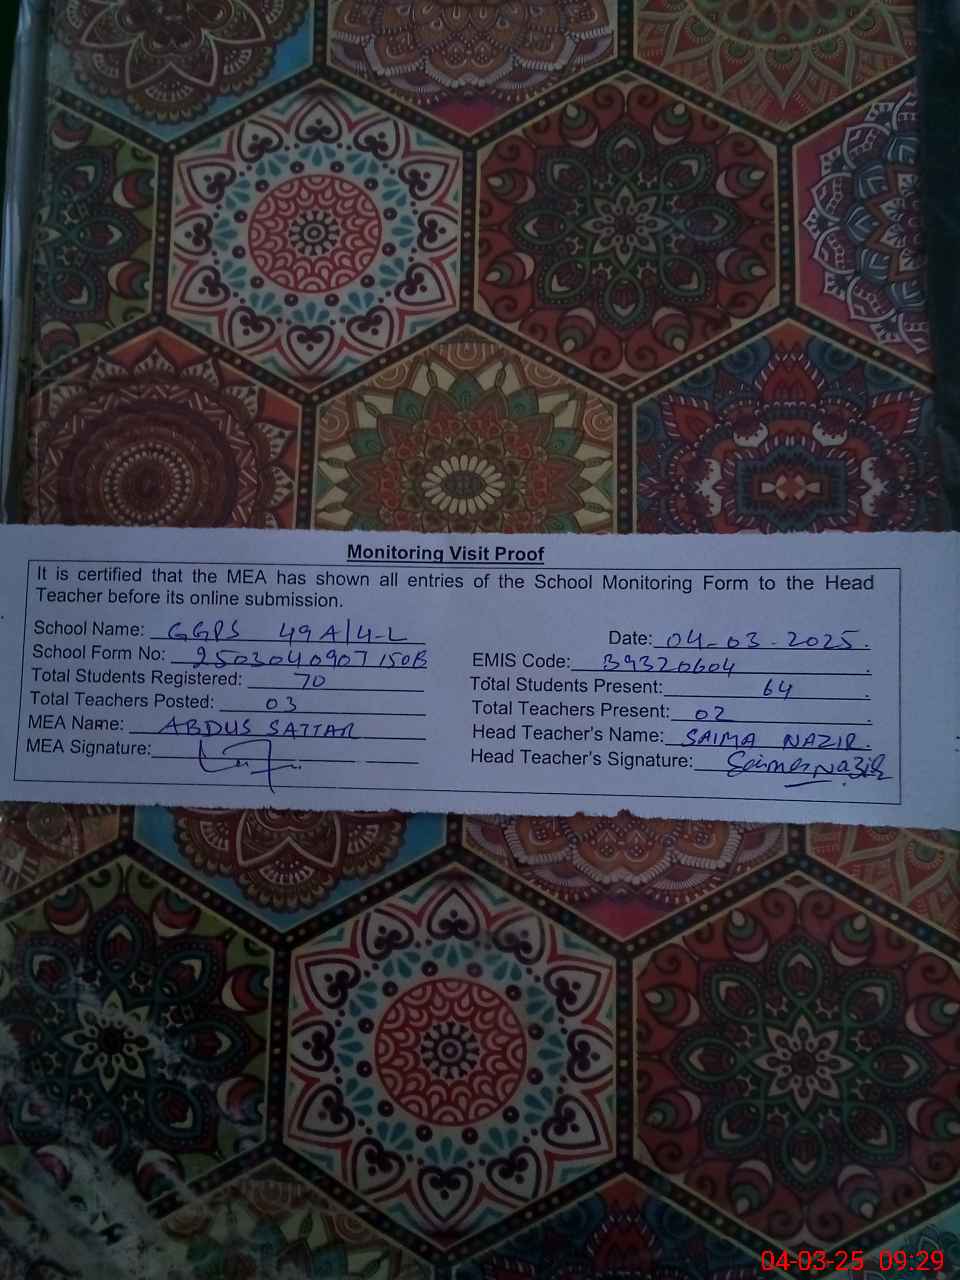 Monitoring Visit Proof
It is certified that the MEA has shown all entries of the School Monitoring Form to the Head
Teacher before its online submission.
School Name: GGPS 49A/4-L
Date: 04-03-2025.
School Form No: 2503040907150B
EMIS Code: 39320604
Total Students Registered: 70
Total Students Present: 64
Total Teachers Posted: 03
Total Teachers Present: 02
MEA Name: ABDUS SATTAR
Head Teacher's Name: SAIMA NAZIR.
MEA Signature:
Head Teacher's Signature: Saima Nazir
04-03-25 09:29